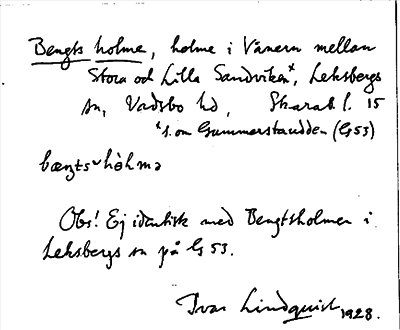 Bengts holme, holme i Vänern mellan
Stora och Lilla Sandviken×, Leksbergs
sn, Vadsbo hd, Skarab. l. 15
× s. om Gummerstaudden (G 53)
bæŋts ̆hòlmə
Obs! Ej identisk med Bengtsholmen i
Leksbergs sn på G 53.
Ivar Lindquist 1928.